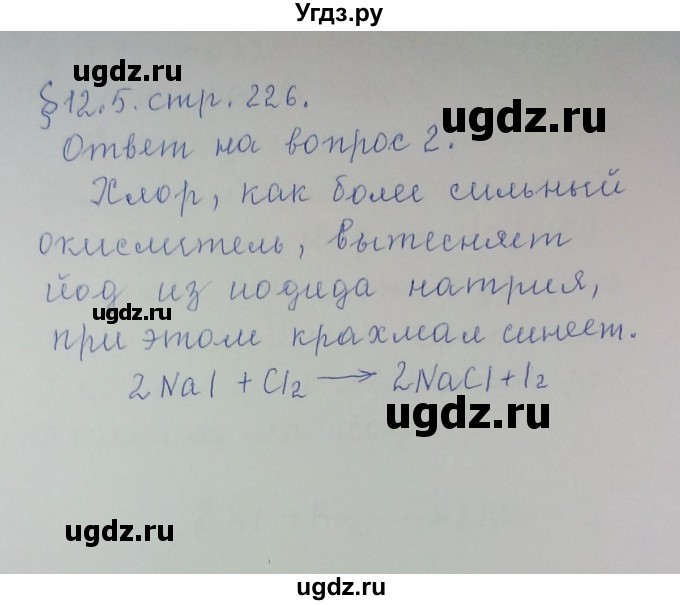 Угдз.ру
ugdz.ru
§ 12.5. стр. 226.
ugdz.ru
Ответ на вопрос 2.
Хлор, как более сильный
окислитель, вытесняет
йод из иодида натрия,
ugdz.ru
при этом крахмал синеет.
2NaI + Cl2 → 2NaCl + I2
ugdz.ru
ugdz.ru
ugdz.ru